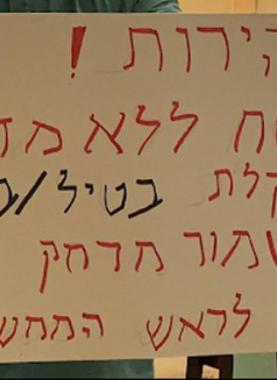 הירות !
ח ללא מ
קלת בטיל/ב
שמור מרחק
לראש המחש